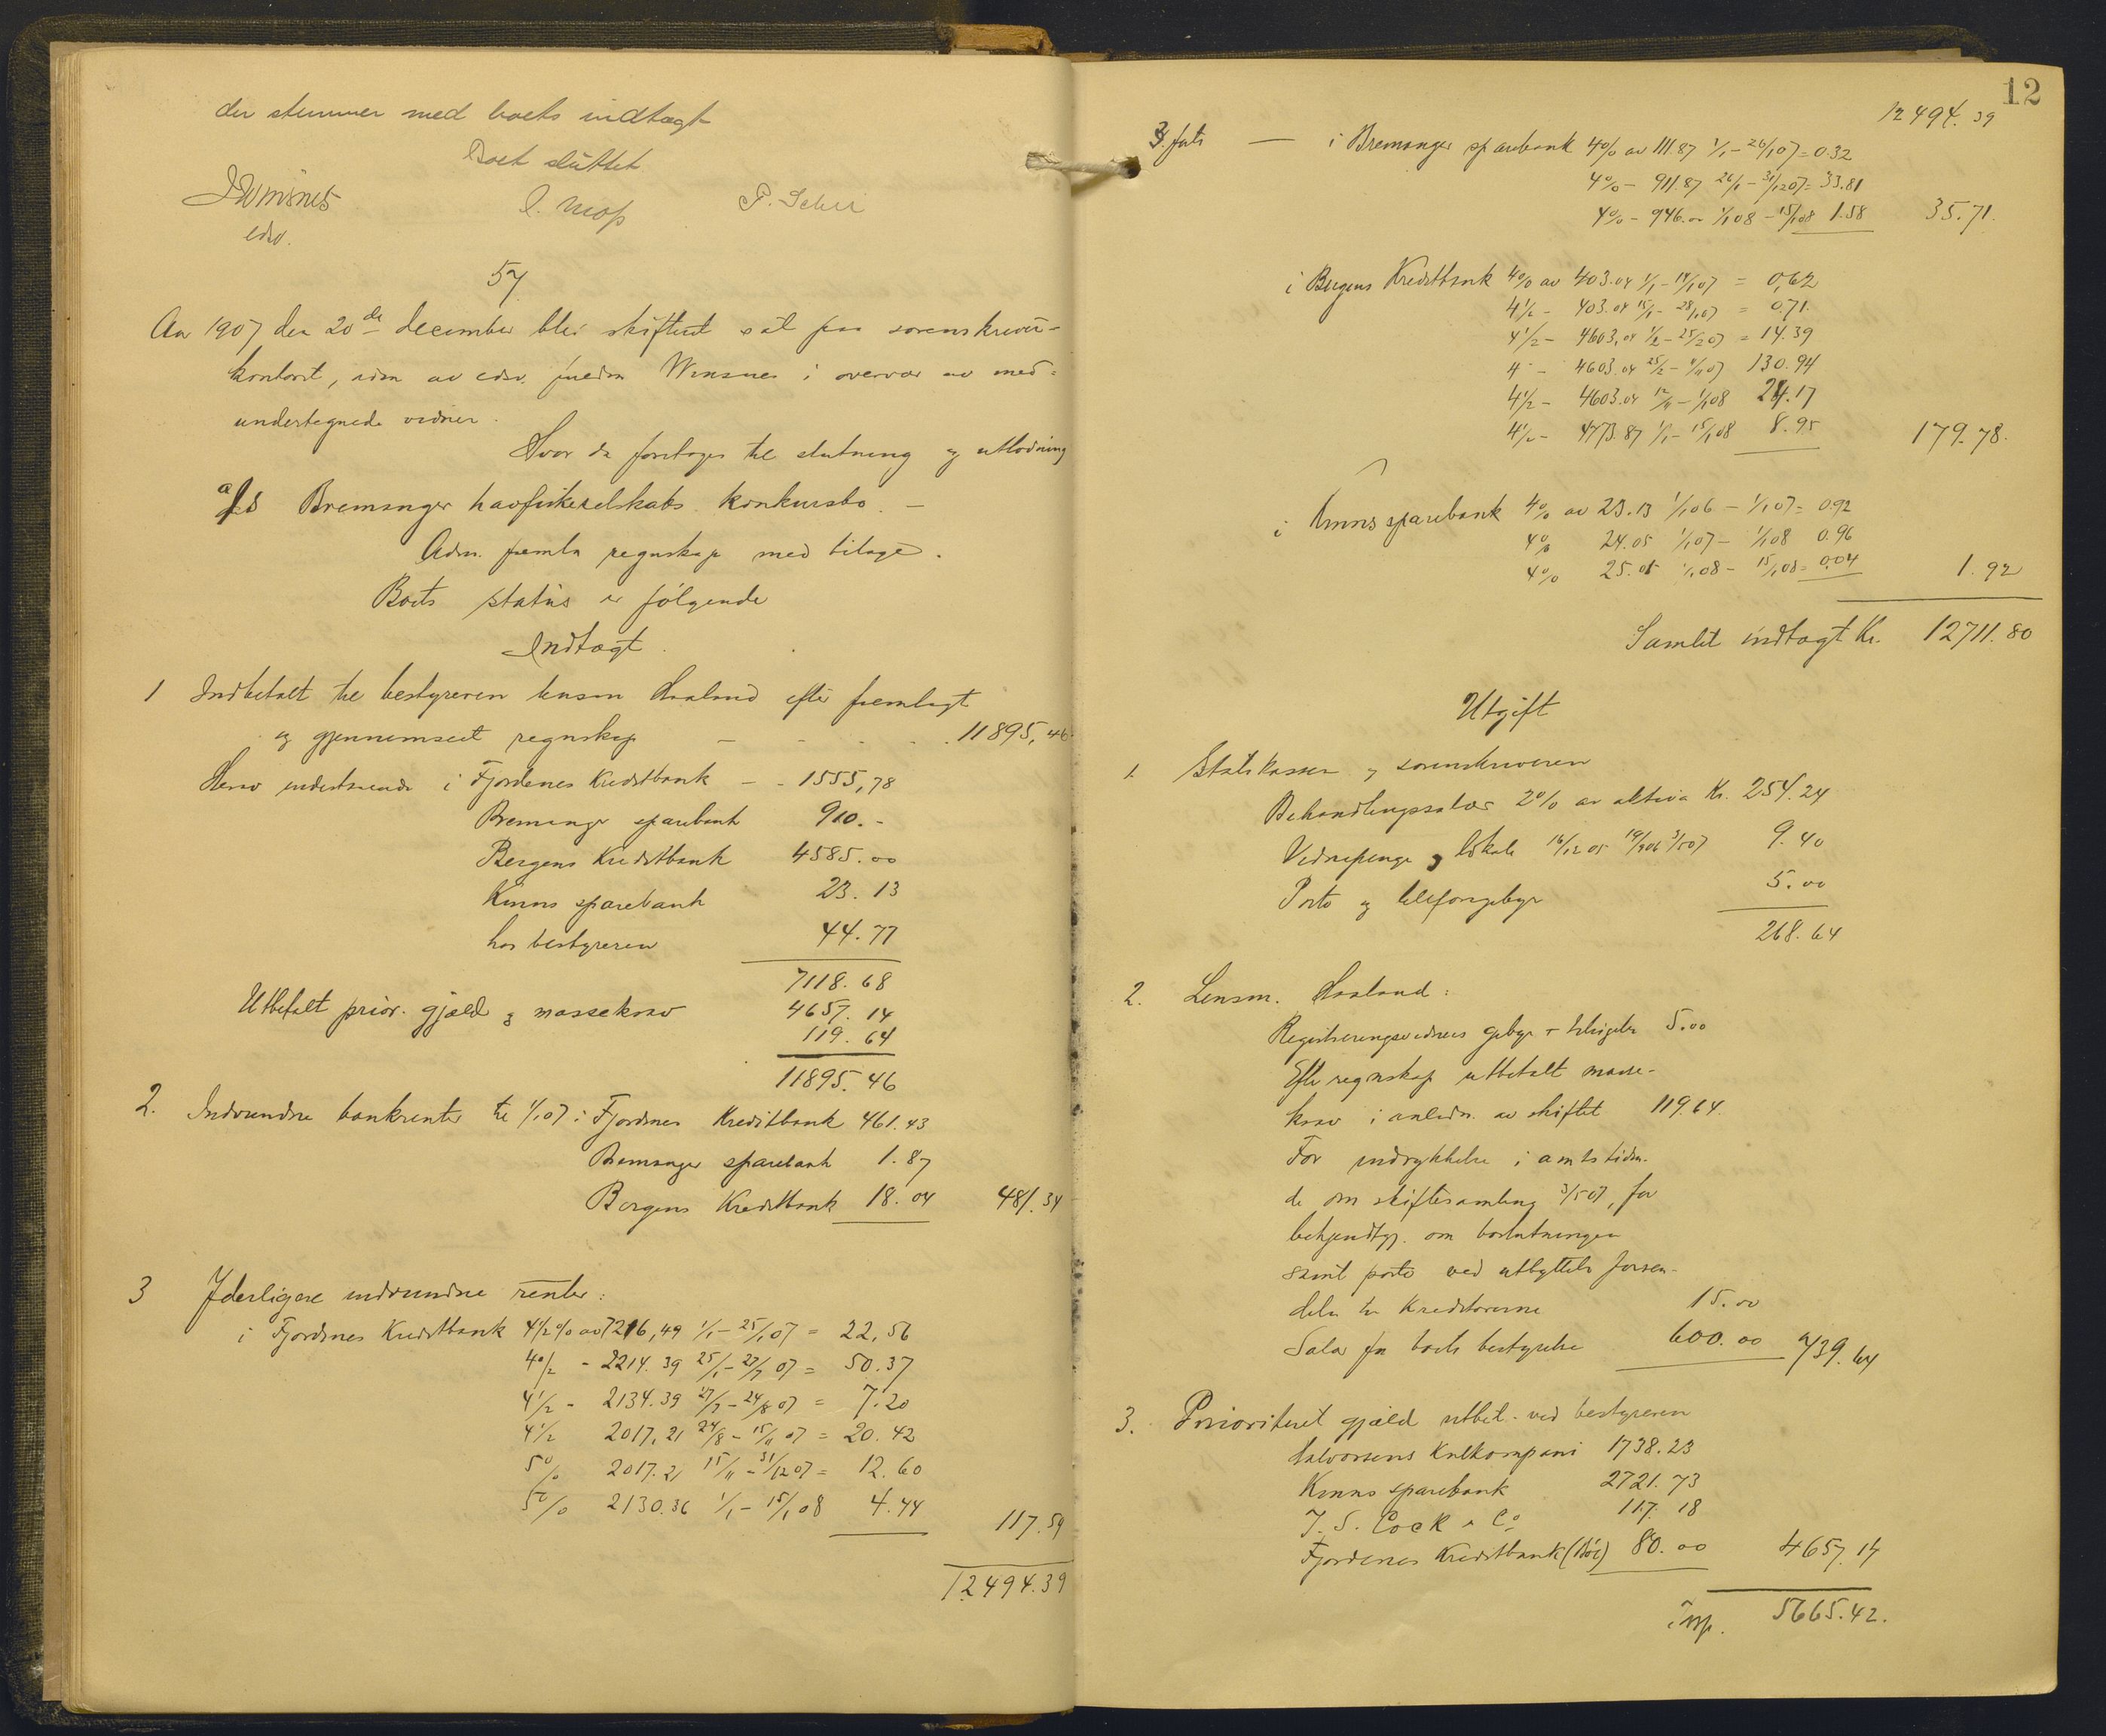 der stemmer med boets indtægt
Boet sluttet
JWinsnes
edsv.
57
Aar 1907 den 20de december blev skifteret sat paa sorenskriver-
kontoret, adm av edsv. fuldm Winsnes i overvær av med-
undertegnede vidner.
Hvor da foretages til slutning og utlodning
a/s Bremanger havfiskeselskabs konkursbo. —
Adm. fremla regnskap med bilage.
Boets status er følgende
Indtægt.
1 Indbetalt til bestyreren lensm Haaland efter fremlagt
og gjennemseet regnskap — 11895,46
Herav indestaaende i Fjordenes Kreditbank — 1555,78
Bremanger sparebank 910.-
Bergens Kreditbank 4585.00
Kinns sparebank 23.13
hos bestyreren 44.77
7118.68
Utbetalt prior. gjæld og massekrav 4657.14
119.64
11895.46
2. Indvundne bankrenter til 1/1 07 i Fjordenes Kreditbank 461.43
Bremanger sparebank 1.87
Bergens Kreditbank 18.04 481.34
3 Yderligere indvundne renter:
i Fjordenes Kreditbank 4 1/2 % av 7216,49 1/1 - 25/1 07 = 22,56
4 % - 2214.39 25/1 - 27/7 07 = 50.37
4 1/2 - 2134.39 27/7 - 24/8 07 = 7.20
4 1/2 2017,21 24/8 - 15/11 07 = 20.42
5 % 2017.21 15/11 - 31/12 07 = 12.60
5 % 2130.36 1/1 - 15/1 08 4.44
117.59
12494.39
12
12494.39
3 forts — i Bremanger sparebank 4% av 111.87 1/1 - 26/1 07 = 0.32
4% - 911.87 26/1 - 31/12 07 = 33.81
4% - 946.00 1/1 08 - 15/1 08 1.58 35.71.
i Bergens Kreditbank 4% av 403.04 1/1 - 14/1 07 = 0,62
4 1/2 - 403.04 15/1 - 28/1 07 = 0.71.
4 1/2 - 4603,04 1/2 - 25/2 07 = 14.39
4 - 4603.04 25/2 - 07 130.94
4 1/2 - 4603.04 12/11 - 1/1 08 24.17
4 1/2 - 4773.87 1/1 - 15/1 08 8.95 179.78.
i Kinns sparebank 4% av 23.13 1/1 06 - 1/1 07 = 0.92
4% 24.05 1/1 07 - 1/1 08 0.96
4% 25.01 1/1 08 - 15/1 08 = 0.04 1.92
Samlet indtægt Kr. 12711.80
Utgift
1. Statskassen v sorenskriveren
Behandlingssalær 2% av aktiva Kr. 254.24
Vidnepenge og lokale 16/12 05 19/9 06 3/5 07 9.40
Porto og telefongebyr 5.00
268.64
2. Lensm. Haaland:
Registreringsvidners gebyr + 5.00
Efter regnskap utbetalt masse-
krav i anledn. av skiftet 119.64.
For indrykkelse i amtstiden-
de om skiftesamling 3/5 07, for
bekjendtgj. om boslutningen
samt porto ved utbyttets forsen-
delse til kreditorerne 15.00
Salær for boets bestyrelse 600.00 739.64
3. Prioriteret gjæld utbet. ved bestyreren
Halvorsens Kulkompani 1738.23
Kinns sparebank 2721.73
J. S. Cock & Co 117.18
Fjordenes Kreditbank 80.00 4657.14
Trsp. 5665.42.